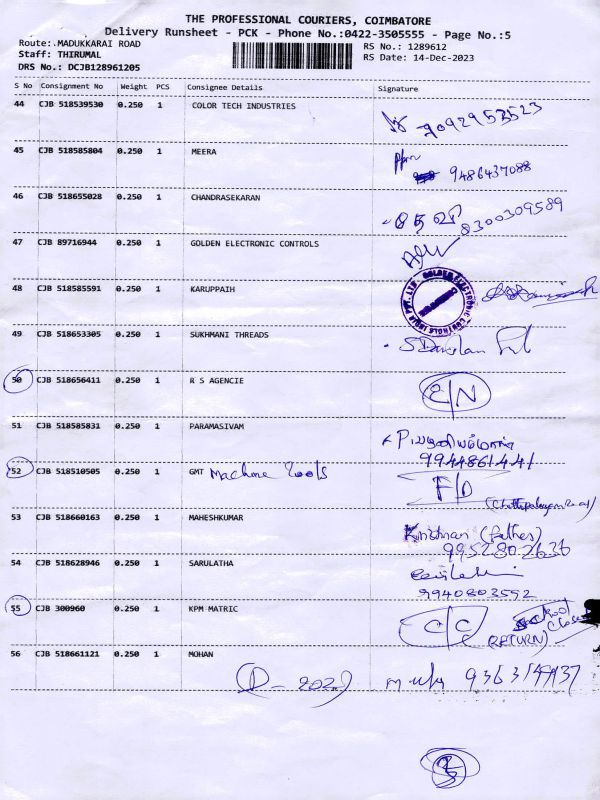 THE PROFESSIONAL COURIERS, COIMBATORE
Delivery Runsheet - PCK - Phone No.:0422-3505555 - Page No.:5
Route: MADUKKARAI ROAD
RS No.: 1289612
Staff: THIRUMAL
RS Date: 14-Dec-2023
DRS No.: DCJB128961205
S No Consignment No Weight PCS Consignee Details Signature
44 CJB 518539530 0.250 1 COLOR TECH INDUSTRIES
7092953523
45 CJB 518585804 0.250 1 MEERA
9486437088
46 CJB 518655028 0.250 1 CHANDRASEKARAN
8300309589
47 CJB 89716944 0.250 1 GOLDEN ELECTRONIC CONTROLS
GOLDEN ELECTRONIC CONTROLS INDIA PVT. LTD
48 CJB 518585591 0.250 1 KARUPPAIH
49 CJB 518653305 0.250 1 SUKHMANI THREADS
50 CJB 518656411 0.250 1 R S AGENCIE
51 CJB 518585831 0.250 1 PARAMASIVAM
9944861441
52 CJB 518510505 0.250 1 GMT Machine Tools F/D
53 CJB 518660163 0.250 1 MAHESHKUMAR
Krishnan (father)
9952802636
54 CJB 518628946 0.250 1 SARULATHA
9940803592
55 CJB 300960 0.250 1 KPM MATRIC
C/C School Closed
(RETURN)
56 CJB 518661121 0.250 1 MOHAN